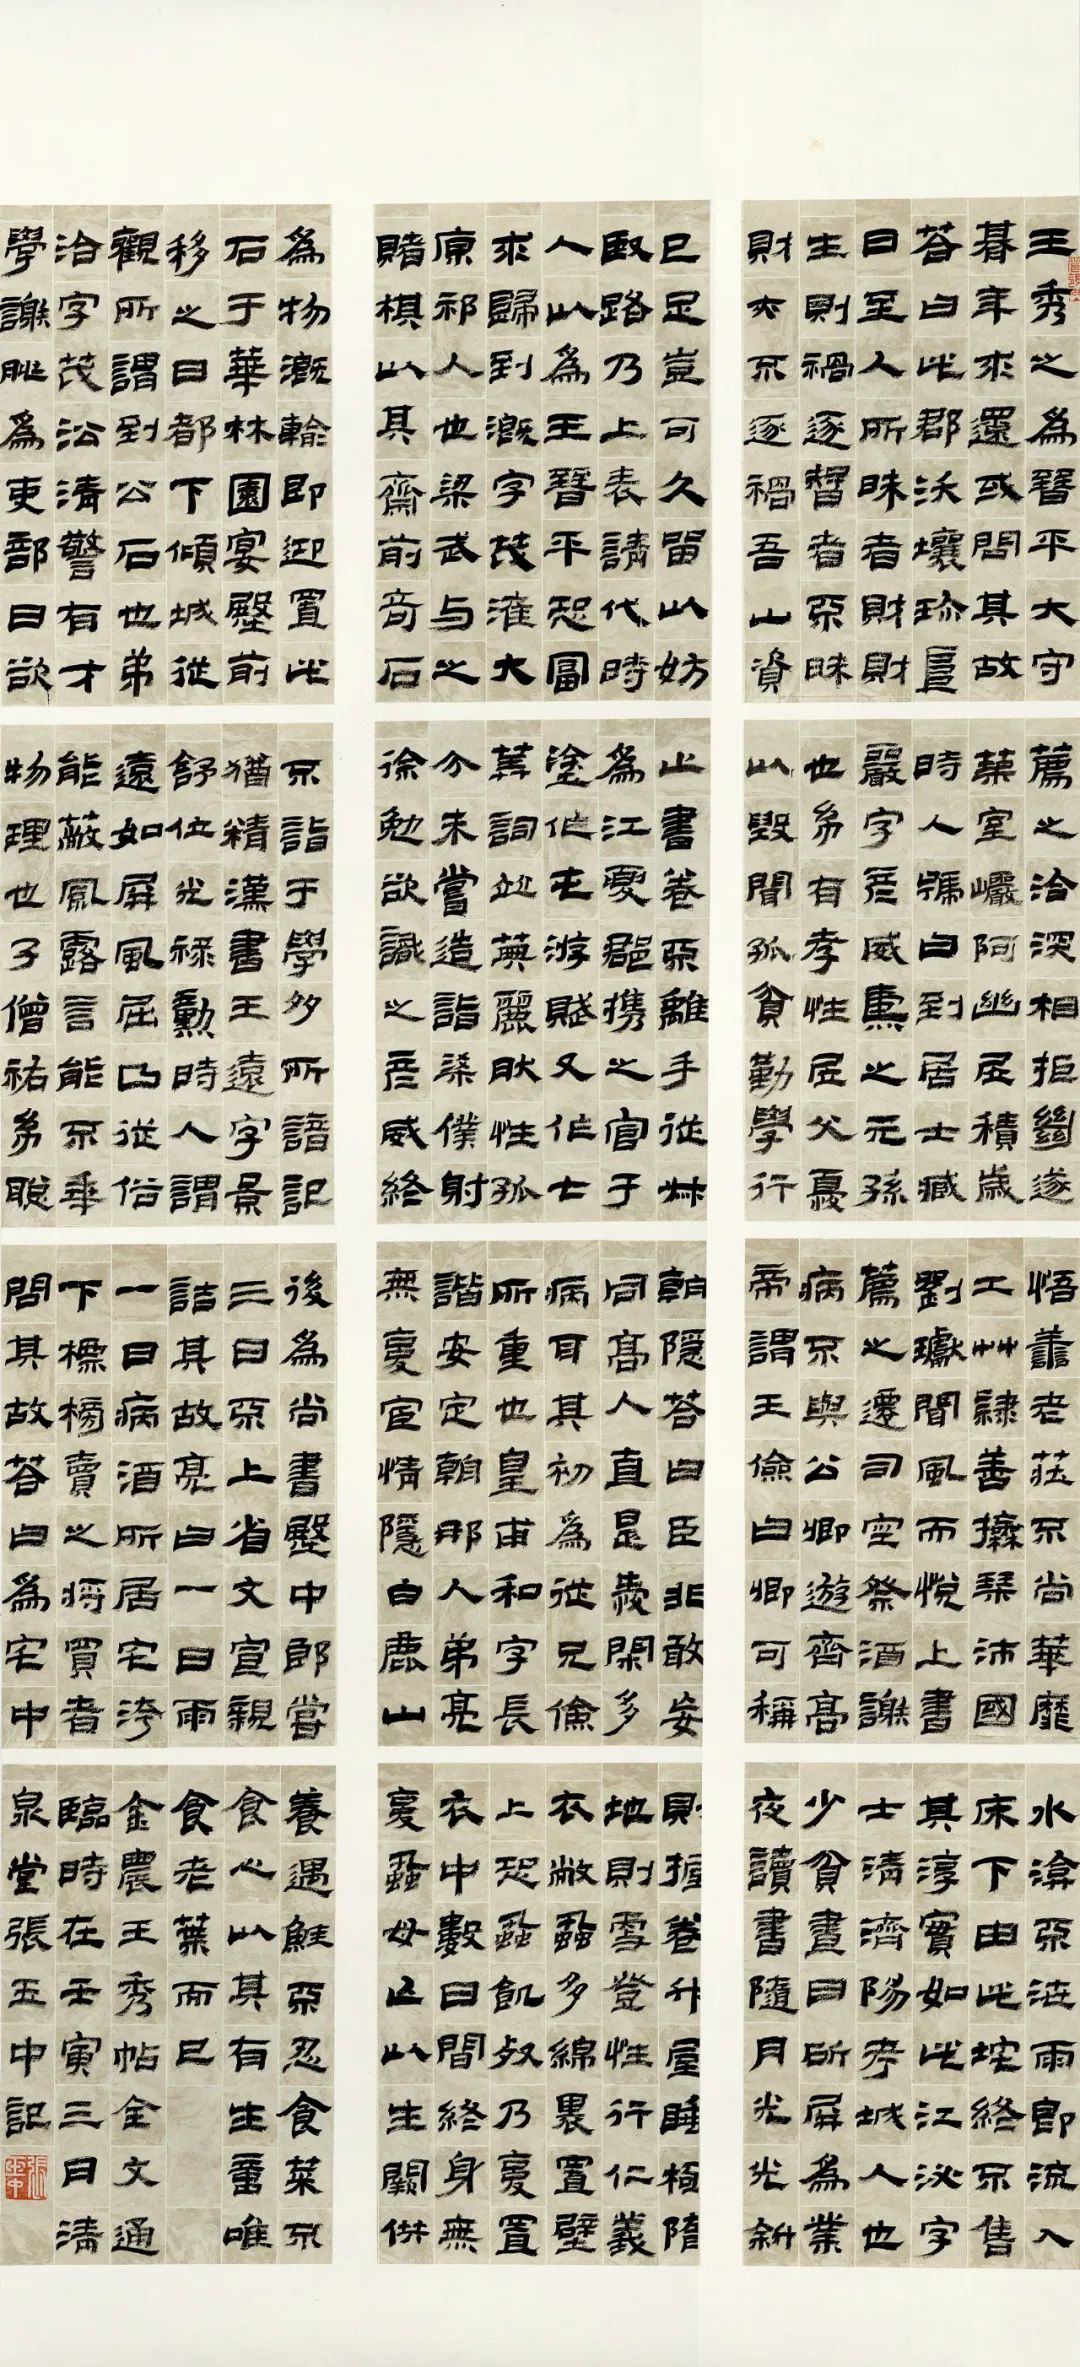 王秀之為晉平大守
朞年求還或問其故
答曰此郡沃壤珍阜
日至人所昧者財財
生則禍逐智者不昧
財亦不逐禍吾山資
已足豈可久留以妨
賢路乃上表請代時
人以為王晉平恐富
求歸到溉字茂灌大
原祁人也梁武与之
賭棋以其齋前奇石
為物溉輸即迎置此
石于華林園宴殿前
移之日都下傾城從
觀所謂到公石也弟
洽字茂㳂清警有才
學謝朓為吏部曰欲
薦之洽深相拒絕遂
築室巖阿幽居積歲
時人號曰到居士臧
嚴字彥威燾之元孫
也幼有孝性居父憂
以毀聞孤貧勤學行
止書卷不離手從叔
為江夏郡攜之官于
塗作屯游賦又作七
算詞竝英麗耿性孤
介未嘗造詣梁僕射
徐勉欲識之彥威終
不詣于學多所諳記
猶精漢書王遠字景
舒位光祿勳時人謂
遠如屏風屈曲從俗
能蔽風露言能不乖
物理也子僧祐幼聰
悟善老莊不尚華靡
工艸隸善操琴沛國
劉瓛聞風而悅上書
薦之遷司空祭酒謝
病不與公卿遊齊高
帝謂王儉曰卿可稱
朝隱答曰臣非敢妄
同高人直是愛閑多
病耳其初為從兄儉
所重也皇甫和字長
諧安定朝那人弟亮
無夏宦情隱白鹿山
後為尚書殿中郎嘗
三日不上省文宣親
詰其故亮曰一日雨
一日病酒所居宅洿
下標榜賣之將買者
問其故答曰為宅中
水淹不泄雨即流入
床下由此宅終不售
其淳實如此江泌字
士清濟陽考城人也
少貧晝日斫屧為業
夜讀書隨月光光斜
則握卷升屋睡極墮
地則復登性行仁義
衣敝蝨多綿裹置壁
上恐蝨飢死乃復置
衣中數日間終身無
复蝨母亡以生闕供
養遇鮭不忍食菜不
食心以其有生意唯
食老葉而已
金農王秀帖全文通
臨時在壬寅三月清
泉堂張玉中記
張玉中